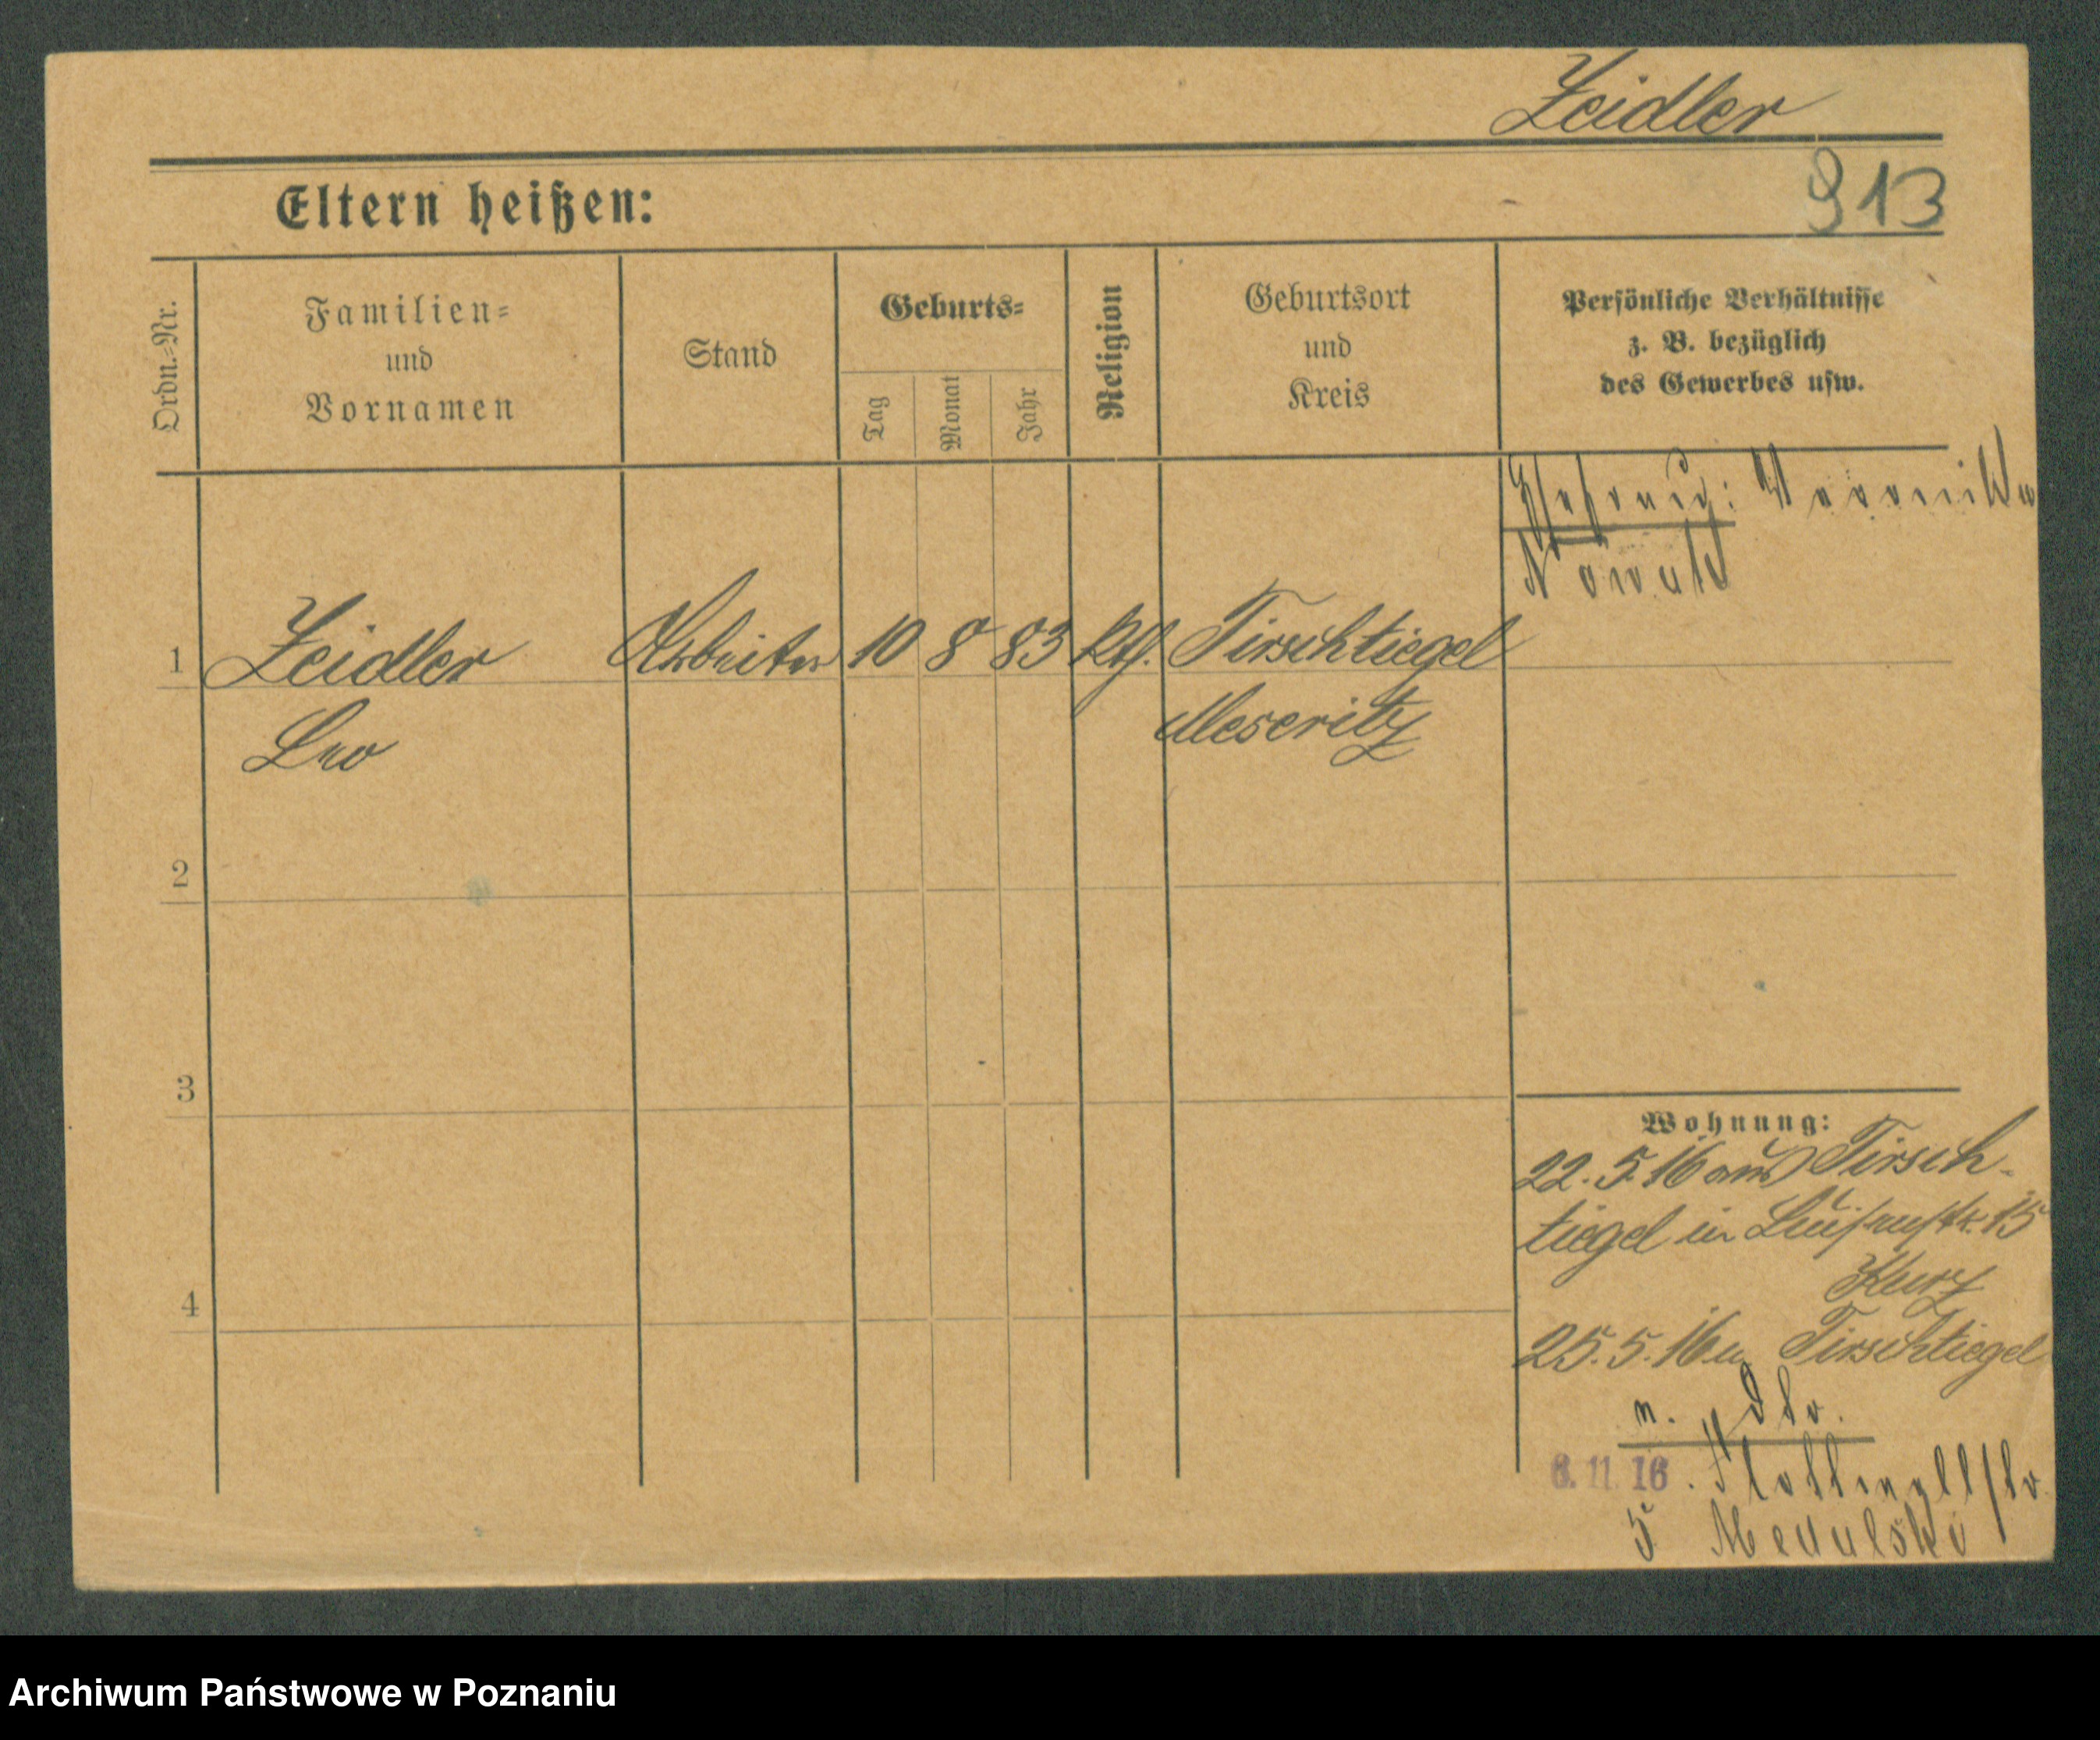 Zeidler
913
Eltern heißen:
Ordn.=Nr.
Familien=
und
Vornamen
Stand
Geburts=
Tag
Monat
Jahr
Religion
Geburtsort
und
Kreis
Persönliche Verhältnisse
z. B. bezüglich
des Gewerbes usw.
Ehefrau: Veronika
Nowak
1 Zeidler Arbeiter 10 8 83 kth. Tirschtiegel
Leo Meseritz
2
3
4
Wohnung:
22. 5. 16 aus Tirsch-
tiegel in Luisenstr. 15
Kurz
25. 5. 16 n. Tirschtiegel
n. dto.
6. 11. 16.
5
Archiwum Państwowe w Poznaniu